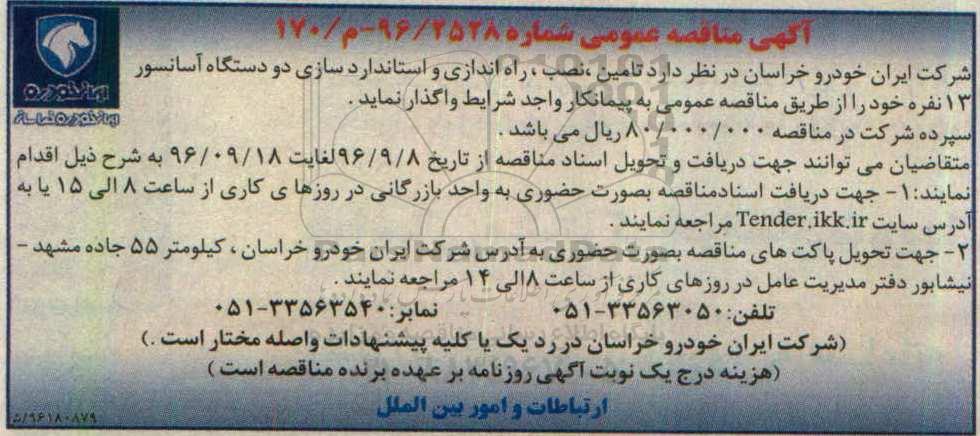 آگهی مناقصه عمومی شماره ۹۶/۲۵۲۸-م/۱۷۰
شرکت ایران خودرو خراسان در نظر دارد تامین ،نصب ، راه اندازی و استاندارد سازی دو دستگاه آسانسور
۱۳ نفره خود را از طریق مناقصه عمومی به پیمانکار واجد شرایط واگذار نماید .
سپرده شرکت در مناقصه ۸۰/۰۰۰/۰۰۰ ریال می باشد .
متقاضیان می توانند جهت دریافت و تحویل اسناد مناقصه از تاریخ ۹۶/۹/۸ لغایت ۹۶/۰۹/۱۸ به شرح ذیل اقدام
نمایند:۱- جهت دریافت اسنادمناقصه بصورت حضوری به واحد بازرگانی در روزها ی کاری از ساعت ۸ الی ۱۵ یا به
آدرس سایت Tender.ikk.ir مراجعه نمایند .
۲- جهت تحویل پاکت های مناقصه بصورت حضوری به آدرس شرکت ایران خودرو خراسان ، کیلومتر ۵۵ جاده مشهد -
نیشابور دفتر مدیریت عامل در روزهای کاری از ساعت ۸الی ۱۴ مراجعه نمایند .
تلفن:۳۳۵۶۳۰۵۰-۰۵۱ نمابر:۳۳۵۶۳۵۴۰-۰۵۱
(شرکت ایران خودرو خراسان در رد یک یا کلیه پیشنهادات واصله مختار است .)
(هزینه درج یک نوبت آگهی روزنامه بر عهده برنده مناقصه است )
ارتباطات و امور بین الملل
۹۶۱۸۰۸۷۹/ش
ایران خودرو
ایران خودرو خراسان